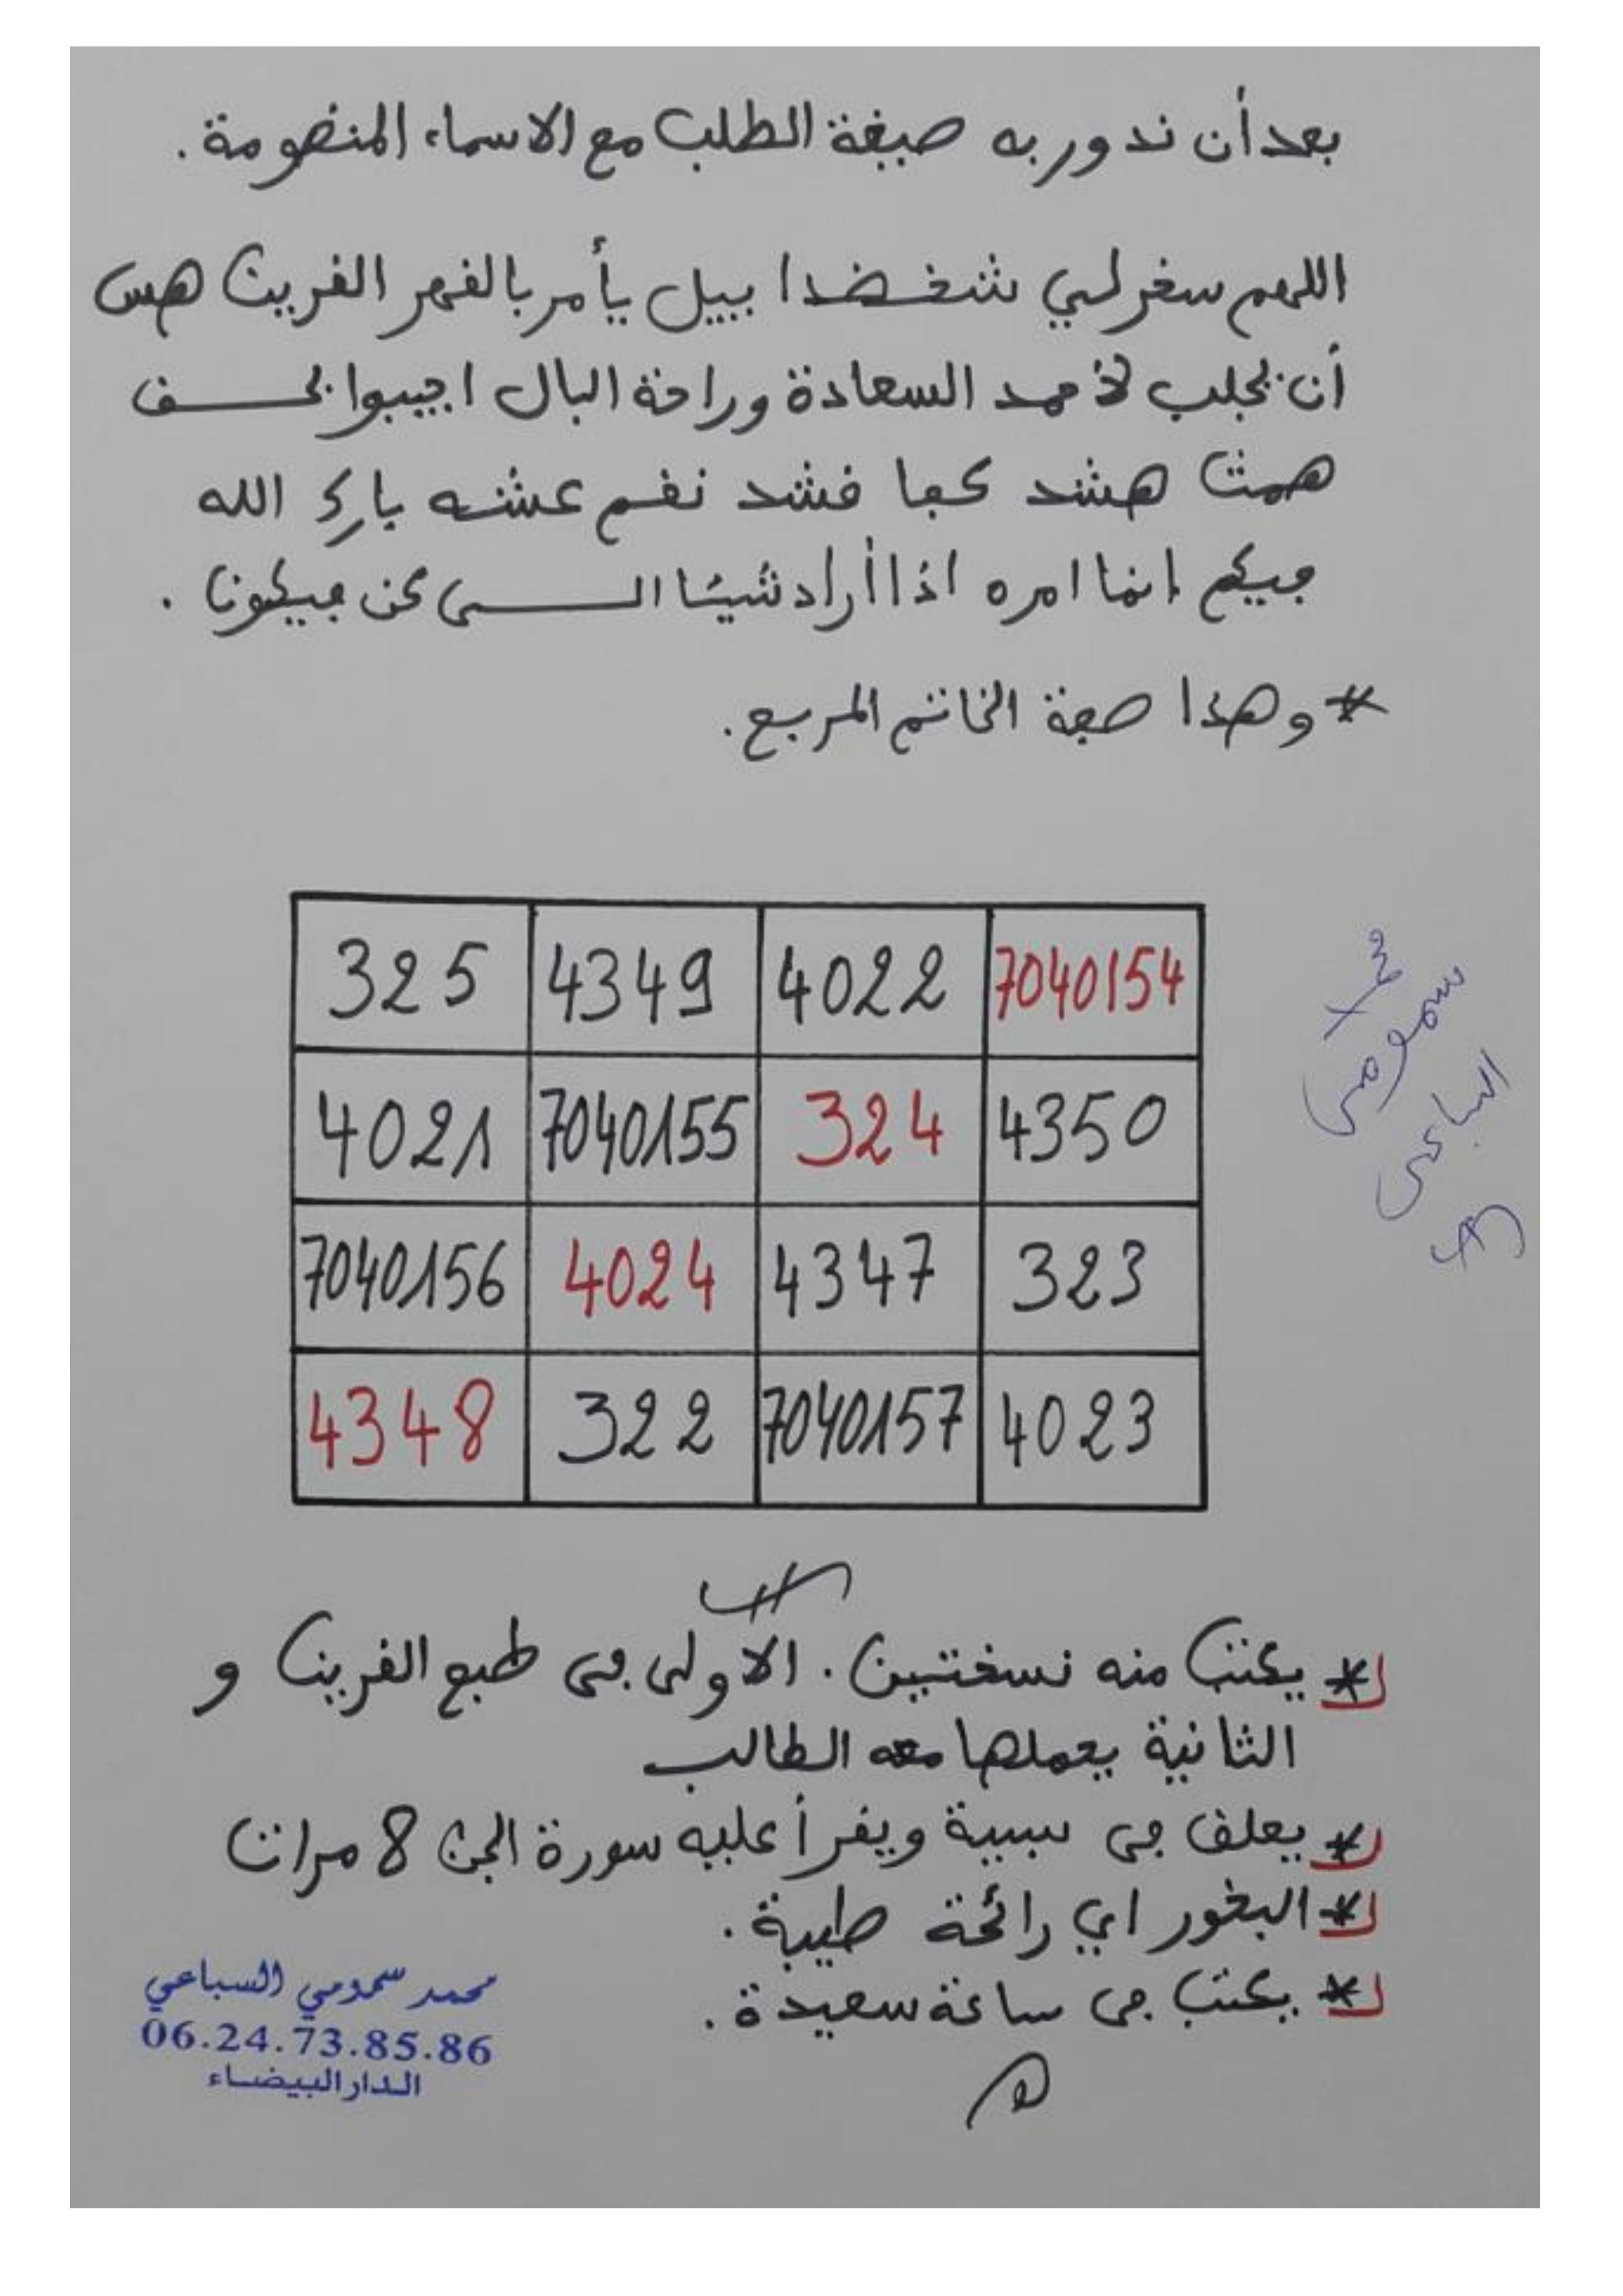 بعد أن ندور به صيغة الطلب مع الاسماء المنضومة.
اللهم سخر لي شغضدا بيل يأمر بالقهر القرين هس
أن يجلب لأحمد السعادة وراحة البال اجيبوا بحــق
همت هشد كجا فشد نغم عشه بارك الله
فيكم إنما امره اذا أراد شيئا الــــى كن فيكون.
* وهذا صفة الخاتم المربع.
325 4349 4022 7040154
4021 7040155 324 4350
7040156 4024 4347 323
4348 322 7040157 4023
محمد
سمومي
السباعي
* يكتب منه نسختين. الأولى في طبع القرين و
الثانية يحملها معه الطالب
* يعلق في سبيبة ويقرأ عليه سورة الجن 8 مرات
* البخور اي رائحة طيبة.
* يكتب في ساعة سعيدة.
محمد سمومي السباعي
06.24.73.85.86
الدار البيضاء